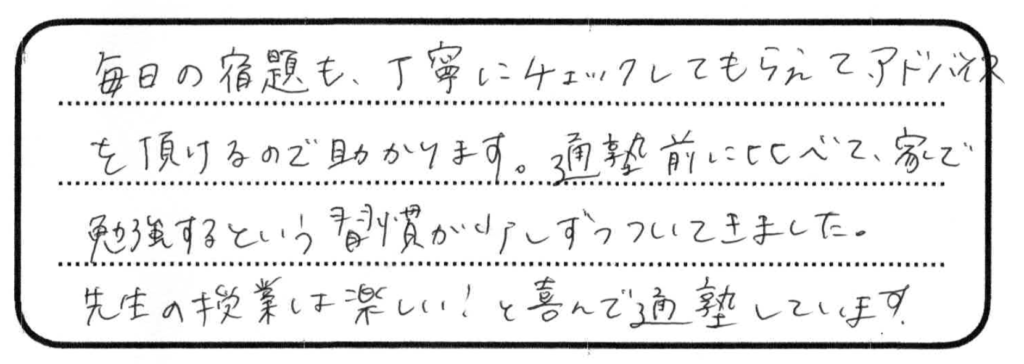 毎日の宿題も、丁寧にチェックしてもらえて、アドバイス
を頂けるので助かります。通塾前に比べて、家で
勉強するという習慣が少しずつついてきました。
先生の授業は楽しい!と喜んで通塾しています。